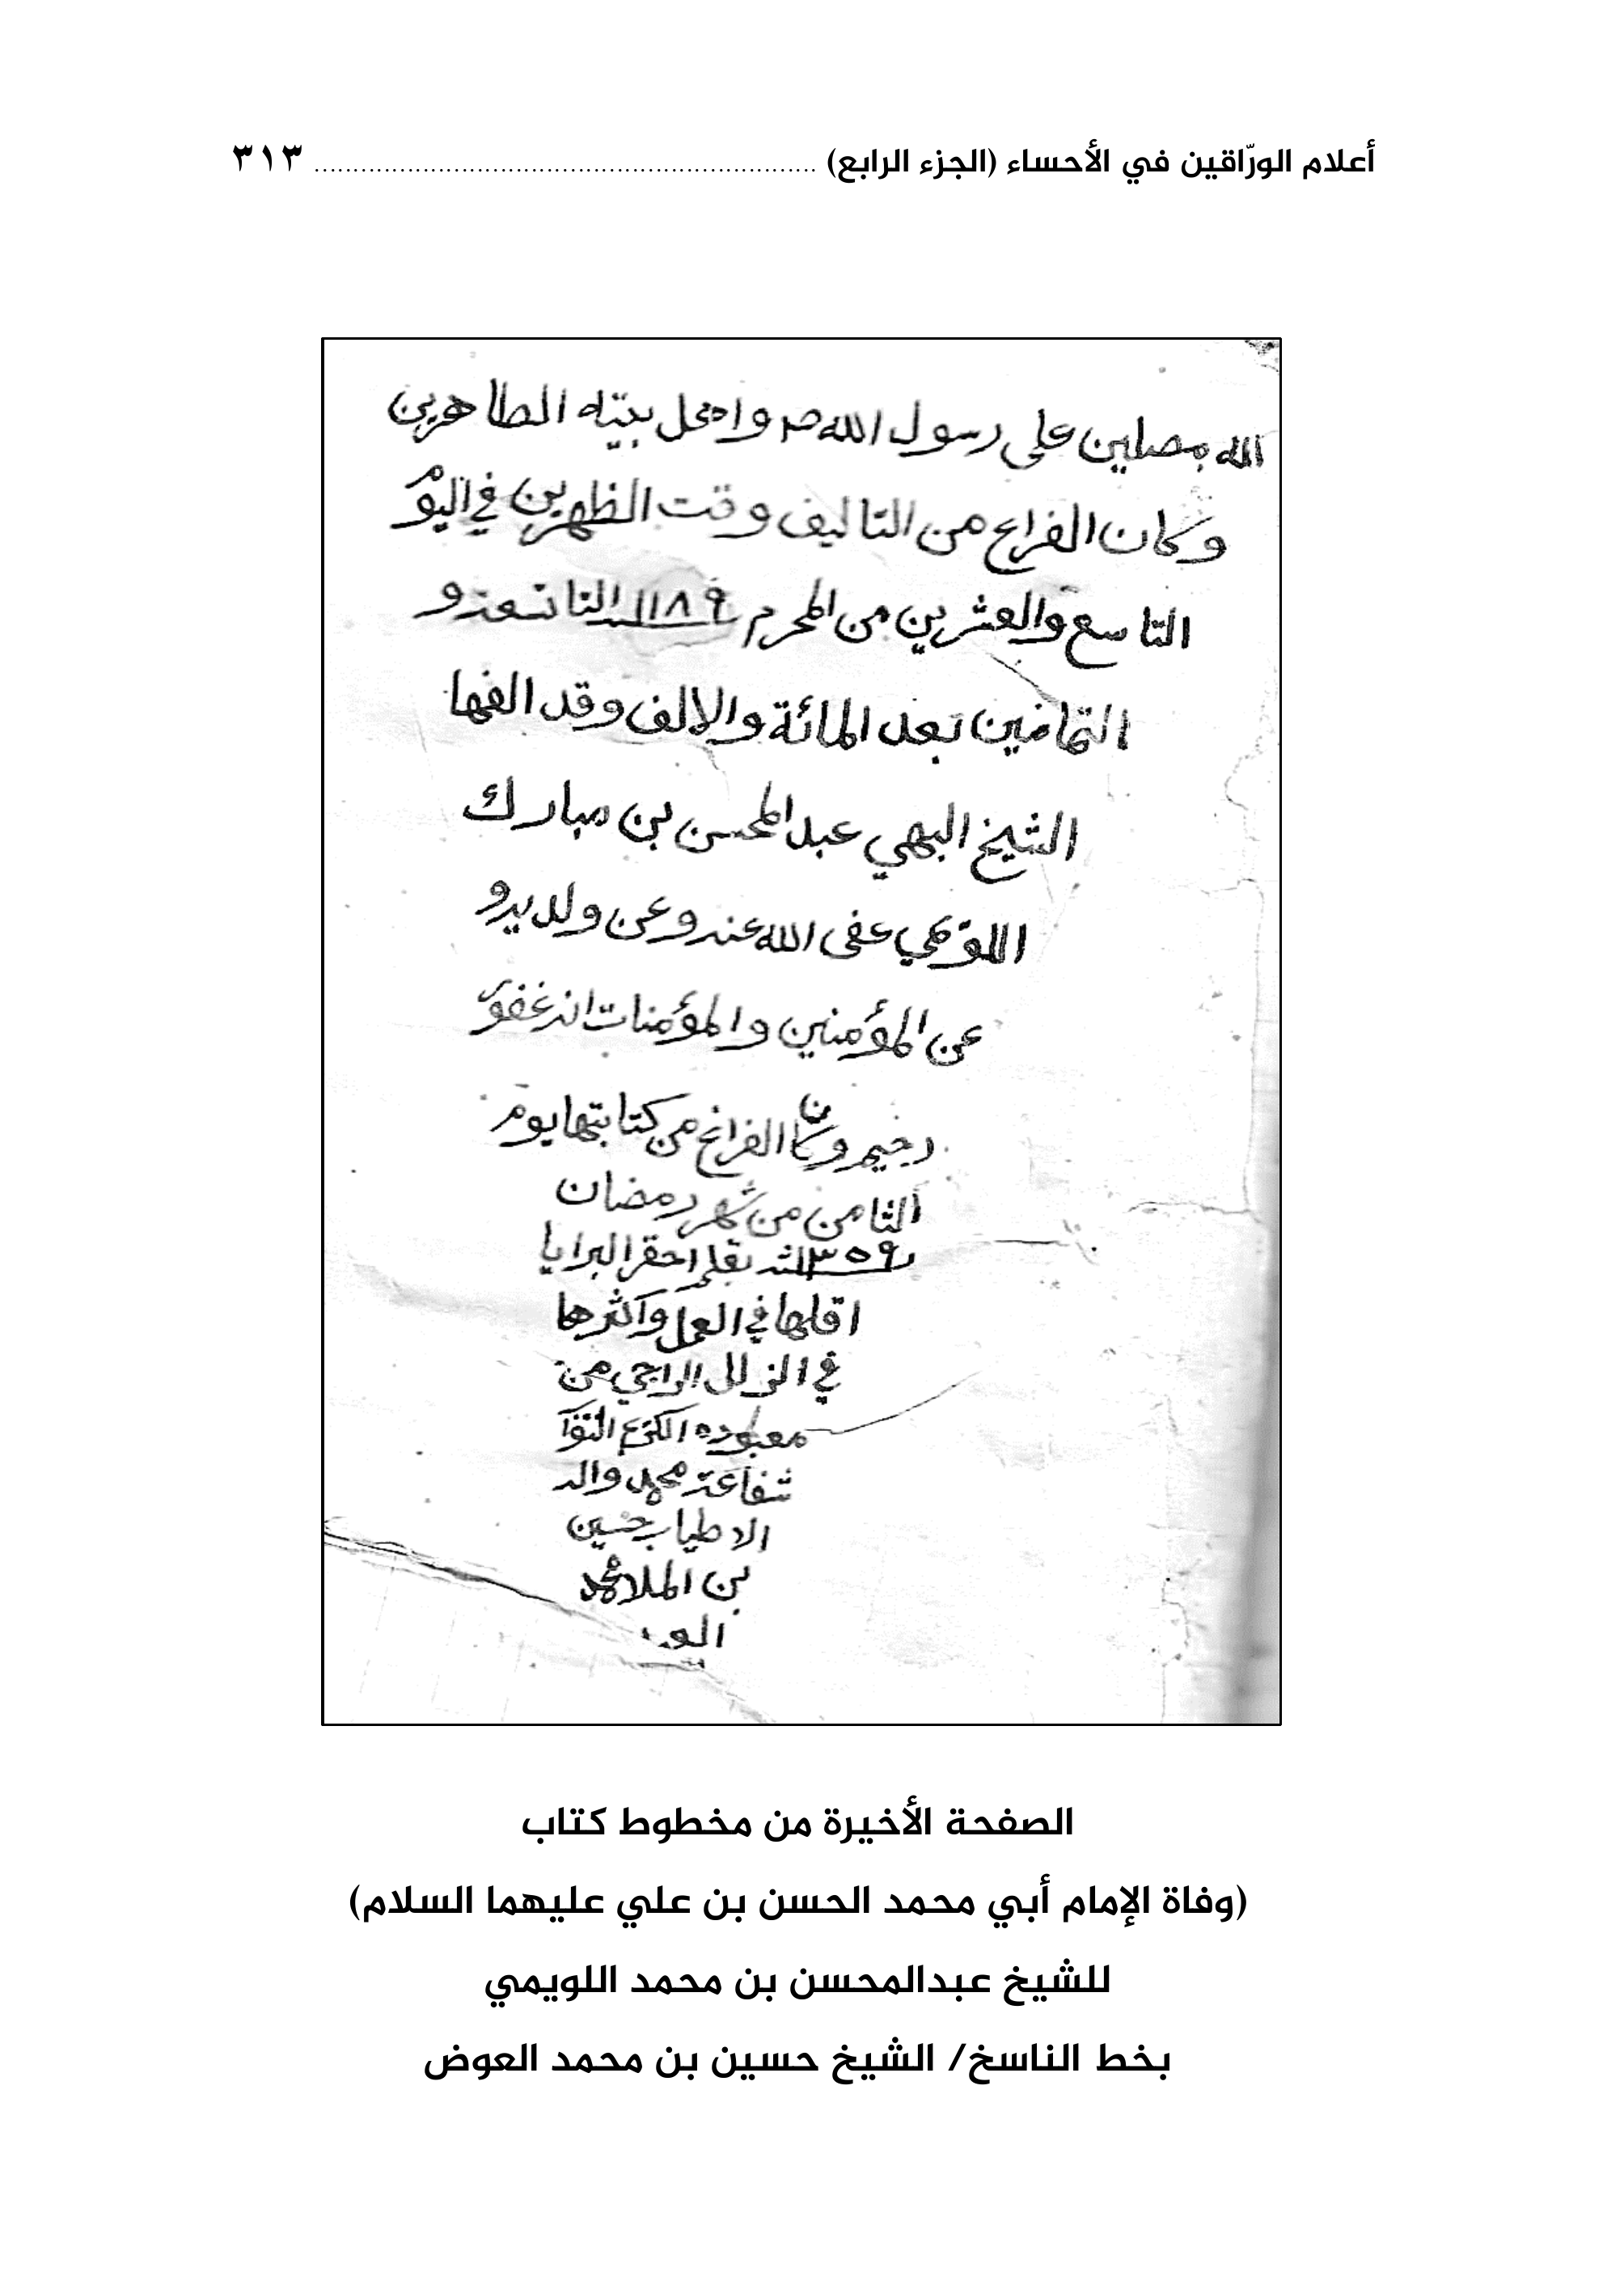 أعلام الورّاقين في الأحساء (الجزء الرابع) ................................................................ ٣١٣
الله مصلين على رسول الله ص واهل بيته الطاهرين
وكان الفراغ من التاليف وقت الظهرين في اليوم
التاسع والعشرين من المحرم ١١٨٩ التاسعة و
الثمانين بعد المائة والالف وقد الفها
الشيخ البهي عبد المحسن بن مبارك
اللويمي عفى الله عنه وعن ولديه و
عن المؤمنين والمؤمنات انه غفور
رحيم وكان الفراغ من كتابتها يوم
الثامن من شهر رمضان
١٣٥٩ بقلم احقر البرايا
اقلها في العمل واكثرها
في الزلل الراجي من
معبوده الكريم
شفاعة محمد واله
الاطياب حسين
بن الملا محمد
الصفحة الأخيرة من مخطوط كتاب
(وفاة الإمام أبي محمد الحسن بن علي عليهما السلام)
للشيخ عبدالمحسن بن محمد اللويمي
بخط الناسخ/ الشيخ حسين بن محمد العوض